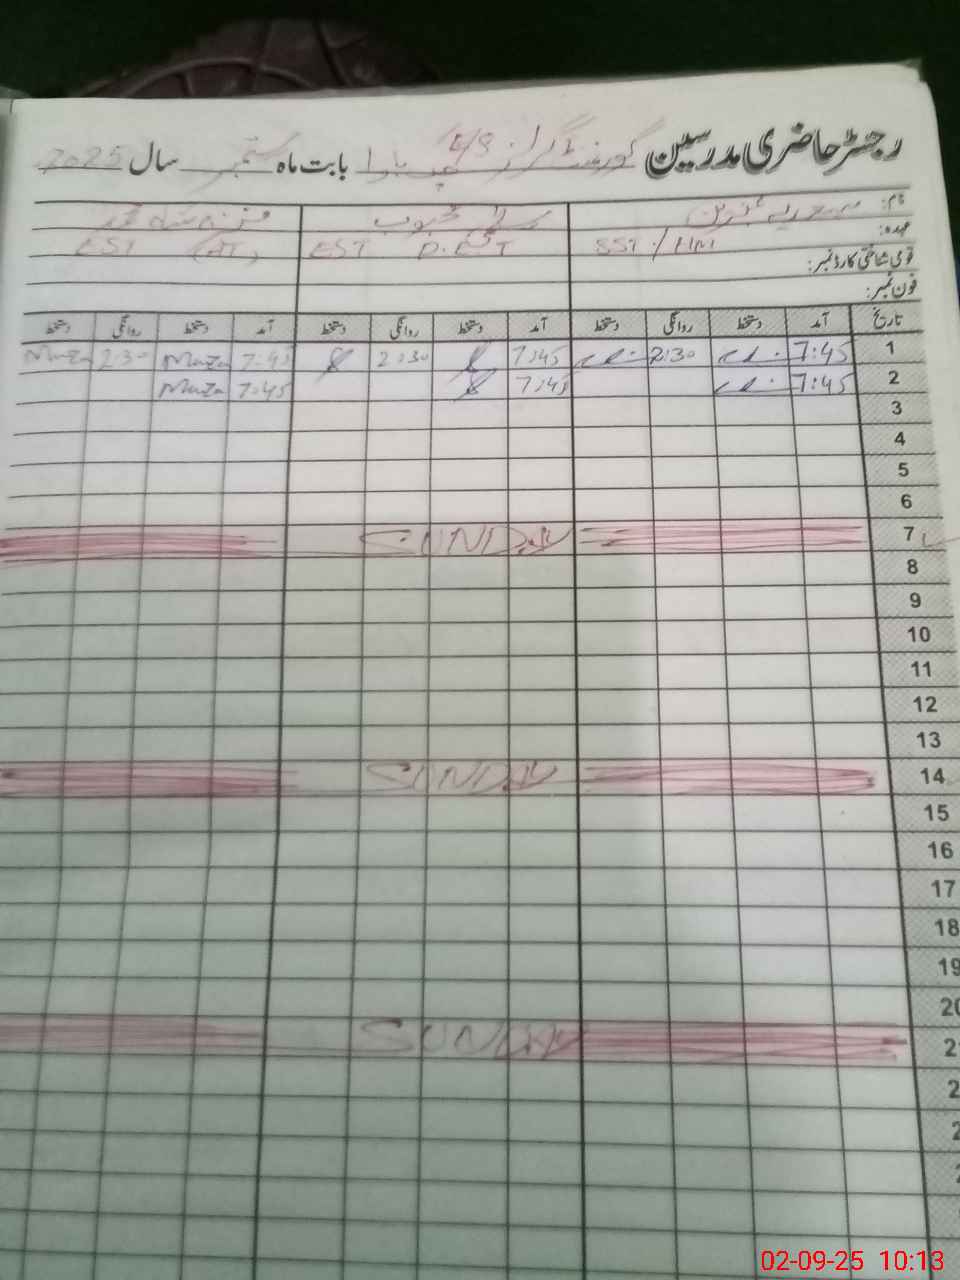 رجسٹر حاضری مدرسین گورنمنٹ گرلز بابت ماہ ستمبر سال 2025
نام:
عہدہ: SST / HM EST P.E.T EST (AT)
قومی شناختی کارڈ نمبر:
فون نمبر:
تاریخ آمد دستخط روانگی دستخط آمد دستخط روانگی دستخط آمد دستخط روانگی دستخط
1 7:45 2:30 7:45 2:30 7:45 2:30
2 7:45 7:45 7:45
3
4
5
6
7 SUNDAY
8
9
10
11
12
13
14 SUNDAY
15
16
17
18
19
20
SUNDAY
02-09-25 10:13